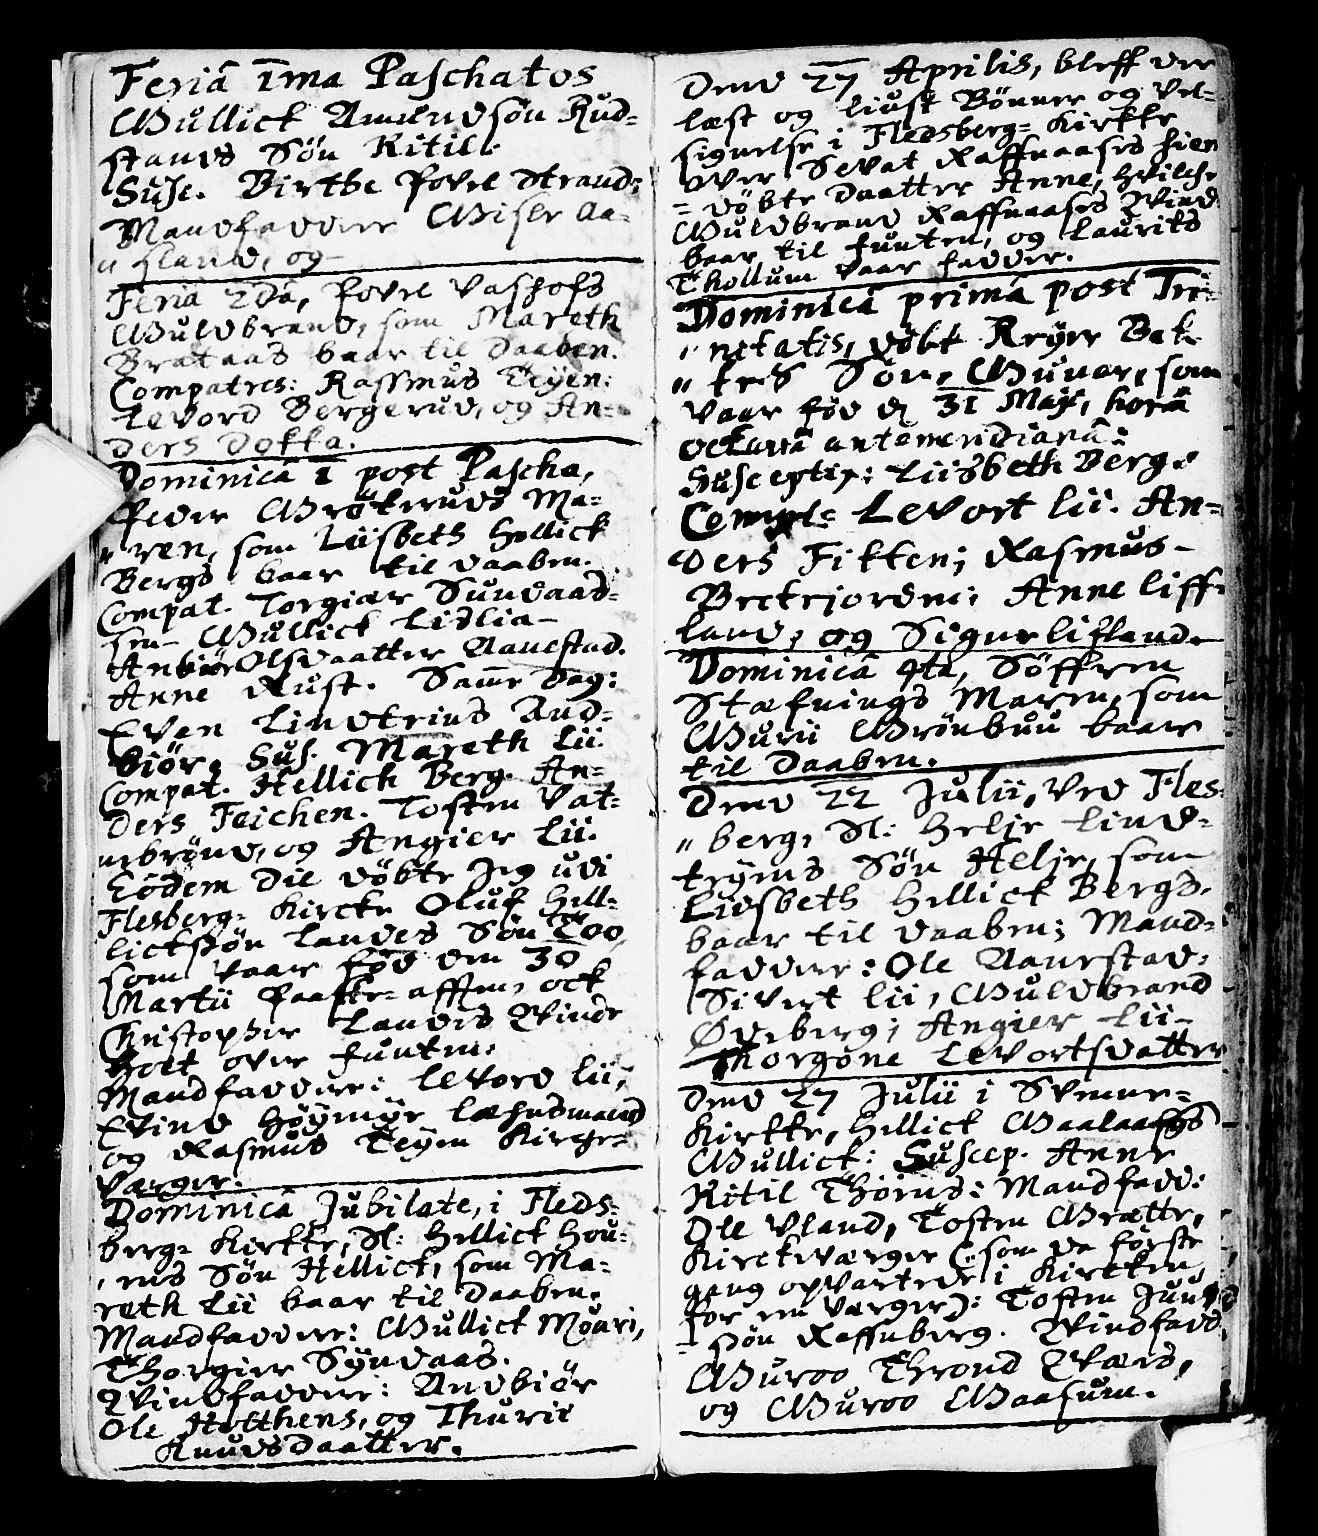 Feriâ 1ma Paschatos
Gullick Amundsön Rud-
stands Sön Kitil.
Susc. Birthe Povel Strand:
Mandfaddere Gisle Aa-
" sland, og
Feria 2da, Povel Vashofs
Guldbrand, som Mareth
Brataas baar til Daaben.
Compatres: Rassmus Teÿen:
Levord Bergerud, og An-
ders Dokka.
Dominicâ 1 post Pascha,
Peder Grökeruds Ma-
" ren, som Liisbeth Hellick
Bergs baar til daaben.
Compat. Torgier Sundaad-
sen Gullick Lislia
Anbiör Olsdaatter Navestad.
Anne Rust. Samme Dag:
Even Lindtriins And-
biör, Sus. Mareth Lii.
Compat. Hellich Berg. An-
ders Feichen. Tosten Vat-
nebrönd, og Angier Lii.
Eôdem Die döbte Jeg udi
Flesberg= Kircke Oluf Hell-
licksön Landes Sön Too,
som vaar föd den 30
Martii Paaske-afften, ock
Christopher Landes Qvinde
holt over funten:
Mandfaddere: Levord Lii,
Evind Höÿmÿr Læhnsmand
og Rasmus Teÿen Kirge-
værger.
Dominicâ Jubilate, i Fleds-
berg= Kirkke, St: Hellick Hou-
" ens Sön Hellick, som Ma-
reth Lii baar til Daaben.
Mandfaddere: Gullick Möuri,
Thorgier Sÿndaas.
Qvindfaddere: Andbiör
Ole Hotthens, og Thurie
Knudsdaatter.
Dend 27 Aprilis, bleff der
læst og liust Bönner og Vel-
signelse i Fledsberg= Kirkke
over Sevat Raffnaases hiem
= döbte Daatter Anne, hvilche
Guldbrand Raffnaases Qvind
baar til funten, og Laurits
Thollum vaar fadder.
Dominicâ primâ post Tri-
" nitatis, döbt Rryer Bak
" kes Sön, Gunar, som
vaar föd d 31 Maji, horâ
octavâ antemeridianâ:
Susceptix: Liisbeth Berg.
Compt= Levort Lii. An-
ders Fikken; Rasmus
Brekejorden; Anne Liff-
land, og Signe Lifland.
Dominicâ 4ta, Söffren
Stæfnings Maren, som
Gurii Grönbuu baar
til Daaben.
Dend 22 Julii, ved Fles-
" berg, St: Helje Lind-
trÿms Sön Helje, som
Liidsbeth Hellick Bergs,
baar til daaben; Mand-
faddere: Ole Navestad,
Sivert Lii, Guldbrand
Øveberg; Angier Lii
Thorgone Levortsdatter
Dend 27 Julii i Svenne-
Kirkke, Hellick Gaalaaes
Gullick: Suscep. Anne
Kitil Thöriis: Mandfadd:
Ole Uland, Tosten Grætte,
Kirckværger (: som da förste
gang opvartede i Kircken,
for en værger): Tosten Juul
= sön Raffnberg. Qvindfadd.
Guroo Thrond Qværs,
og Guroo Gaasum.